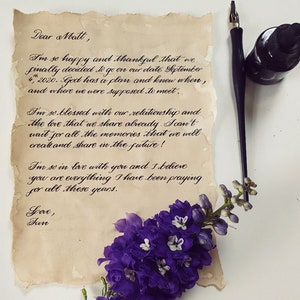 Dear Matt,
I'm so happy and thankful that we
finally decided to go on our date September
4th, 2020. God has a plan and knew when,
and where we were supposed to meet.
I'm so blessed with our relationship and
the love that we share already. I can't
wait for all the memories that we will
create and share in the future!
I'm so in love with you and I believe
you are everything I have been praying
for all these years.
Love,